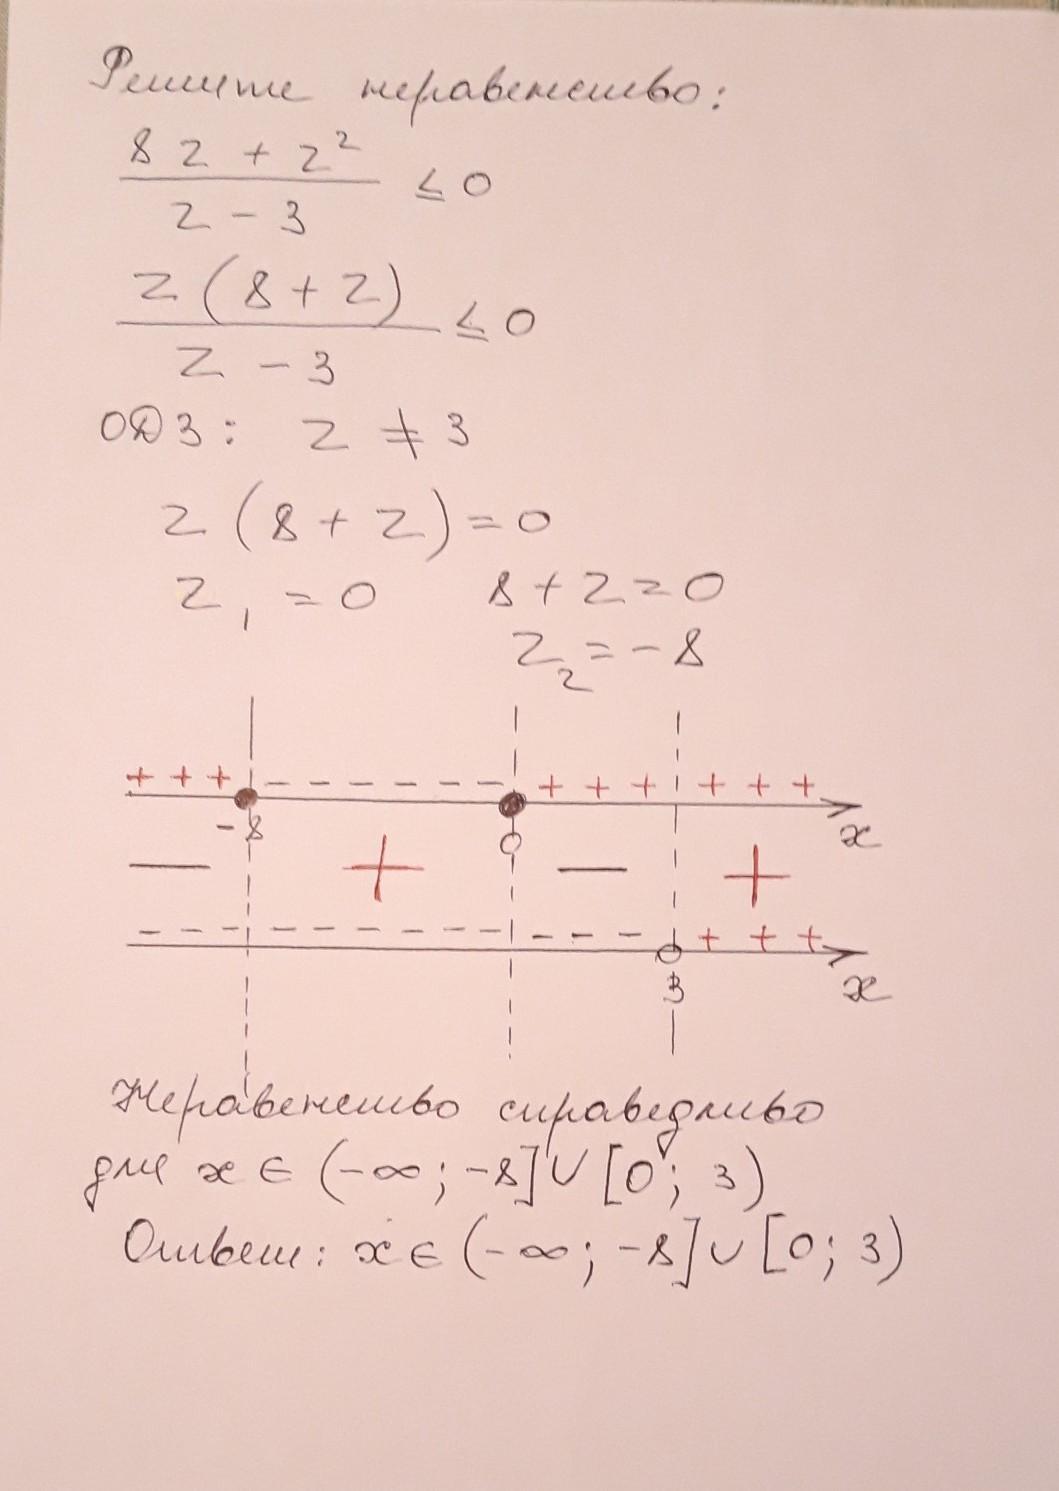 Решите неравенство:
8z + z²
z - 3
≤ 0
z(8+z)
z - 3
≤ 0
ОДЗ: z ≠ 3
z(8+z)=0
z₁ = 0 8+z=0
z₂ = -8
+ + + - - - - - - + + + + + +
-8 0 x
— + — +
- - - - - - - - - - - - + + +
3 x
Неравенство справедливо
для x ∈ (-∞; -8] ∪ [0; 3)
Ответ: x ∈ (-∞; -8] ∪ [0; 3)